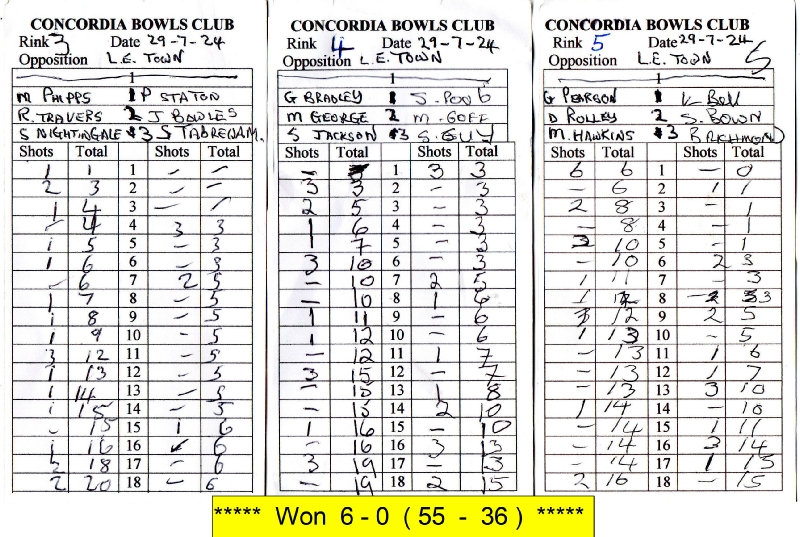 CONCORDIA BOWLS CLUB
Rink 3 Date 29-7-24
Opposition L.E. TOWN
1
M PHIPPS 1 P STATON
R. TRAVERS 2 J BOWLES
S NIGHTINGALE 3 S TABRENAM.
Shots Total Shots Total
1 1 1 - -
2 3 2 - -
1 4 3 - -
- 4 4 3 3
1 5 5 - 3
1 6 6 - 3
- 6 7 2 5
1 7 8 - 5
1 8 9 - 5
1 9 10 - 5
3 12 11 - 5
1 13 12 - 5
1 14 13 - 5
1 15 14 - 5
- 15 15 1 6
1 16 16 6
2 18 17 - 6
2 20 18 - 6
CONCORDIA BOWLS CLUB
Rink 4 Date 29-7-24
Opposition L.E. TOWN
1
G BRADLEY 1 S.
M GEORGE 2 M. GOFF
S JACKSON 3 S. GUY
Shots Total Shots Total
- 1 3 3
3 3 2 - 3
2 5 3 - 3
1 6 4 - 3
1 7 5 - 3
3 10 6 - 3
- 10 7 2 5
- 10 8 1 6
1 11 9 - 6
1 12 10 - 6
- 12 11 1 7
3 15 12 - 7
- 15 13 1 8
- 15 14 2 10
1 16 15 - 10
- 16 16 3 13
3 19 17 - 3
- 19 18 2 15
CONCORDIA BOWLS CLUB
Rink 5 Date 29-7-24
Opposition L.E. TOWN 5
1
G PEARSON 1
D ROLLEY 2 S. BOWN
M. HAWKINS 3 B RICHMOND
Shots Total Shots Total
6 6 1 - 0
- 6 2 1 1
2 8 3 - 1
- 8 4 - 1
10 5 - 1
- 10 6 2 3
1 11 7 - 3
1 12 8 - 3
12 9 2 5
1 13 10 - 5
- 13 11 1 6
- 13 12 1 7
- 13 13 3 10
1 14 14 - 10
- 14 15 1 11
- 14 16 3 14
- 14 17 1 15
2 16 18 - 15
***** Won 6 - 0 ( 55 - 36 ) *****